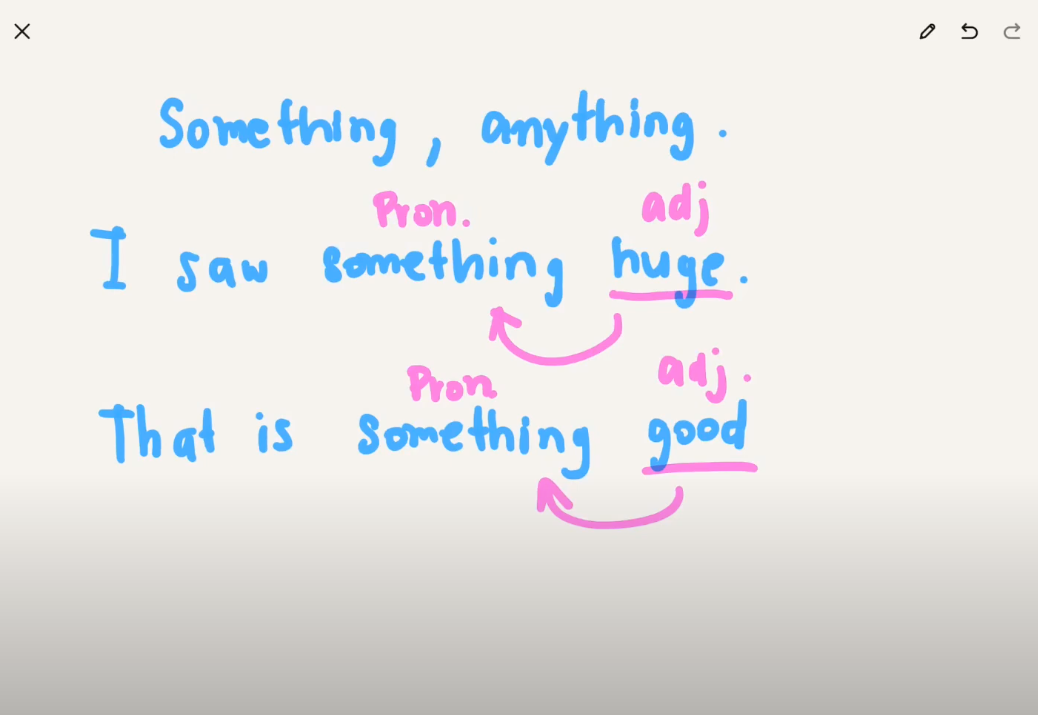 Something, anything.
Pron. adj
I saw something huge.
Pron. adj.
That is something good